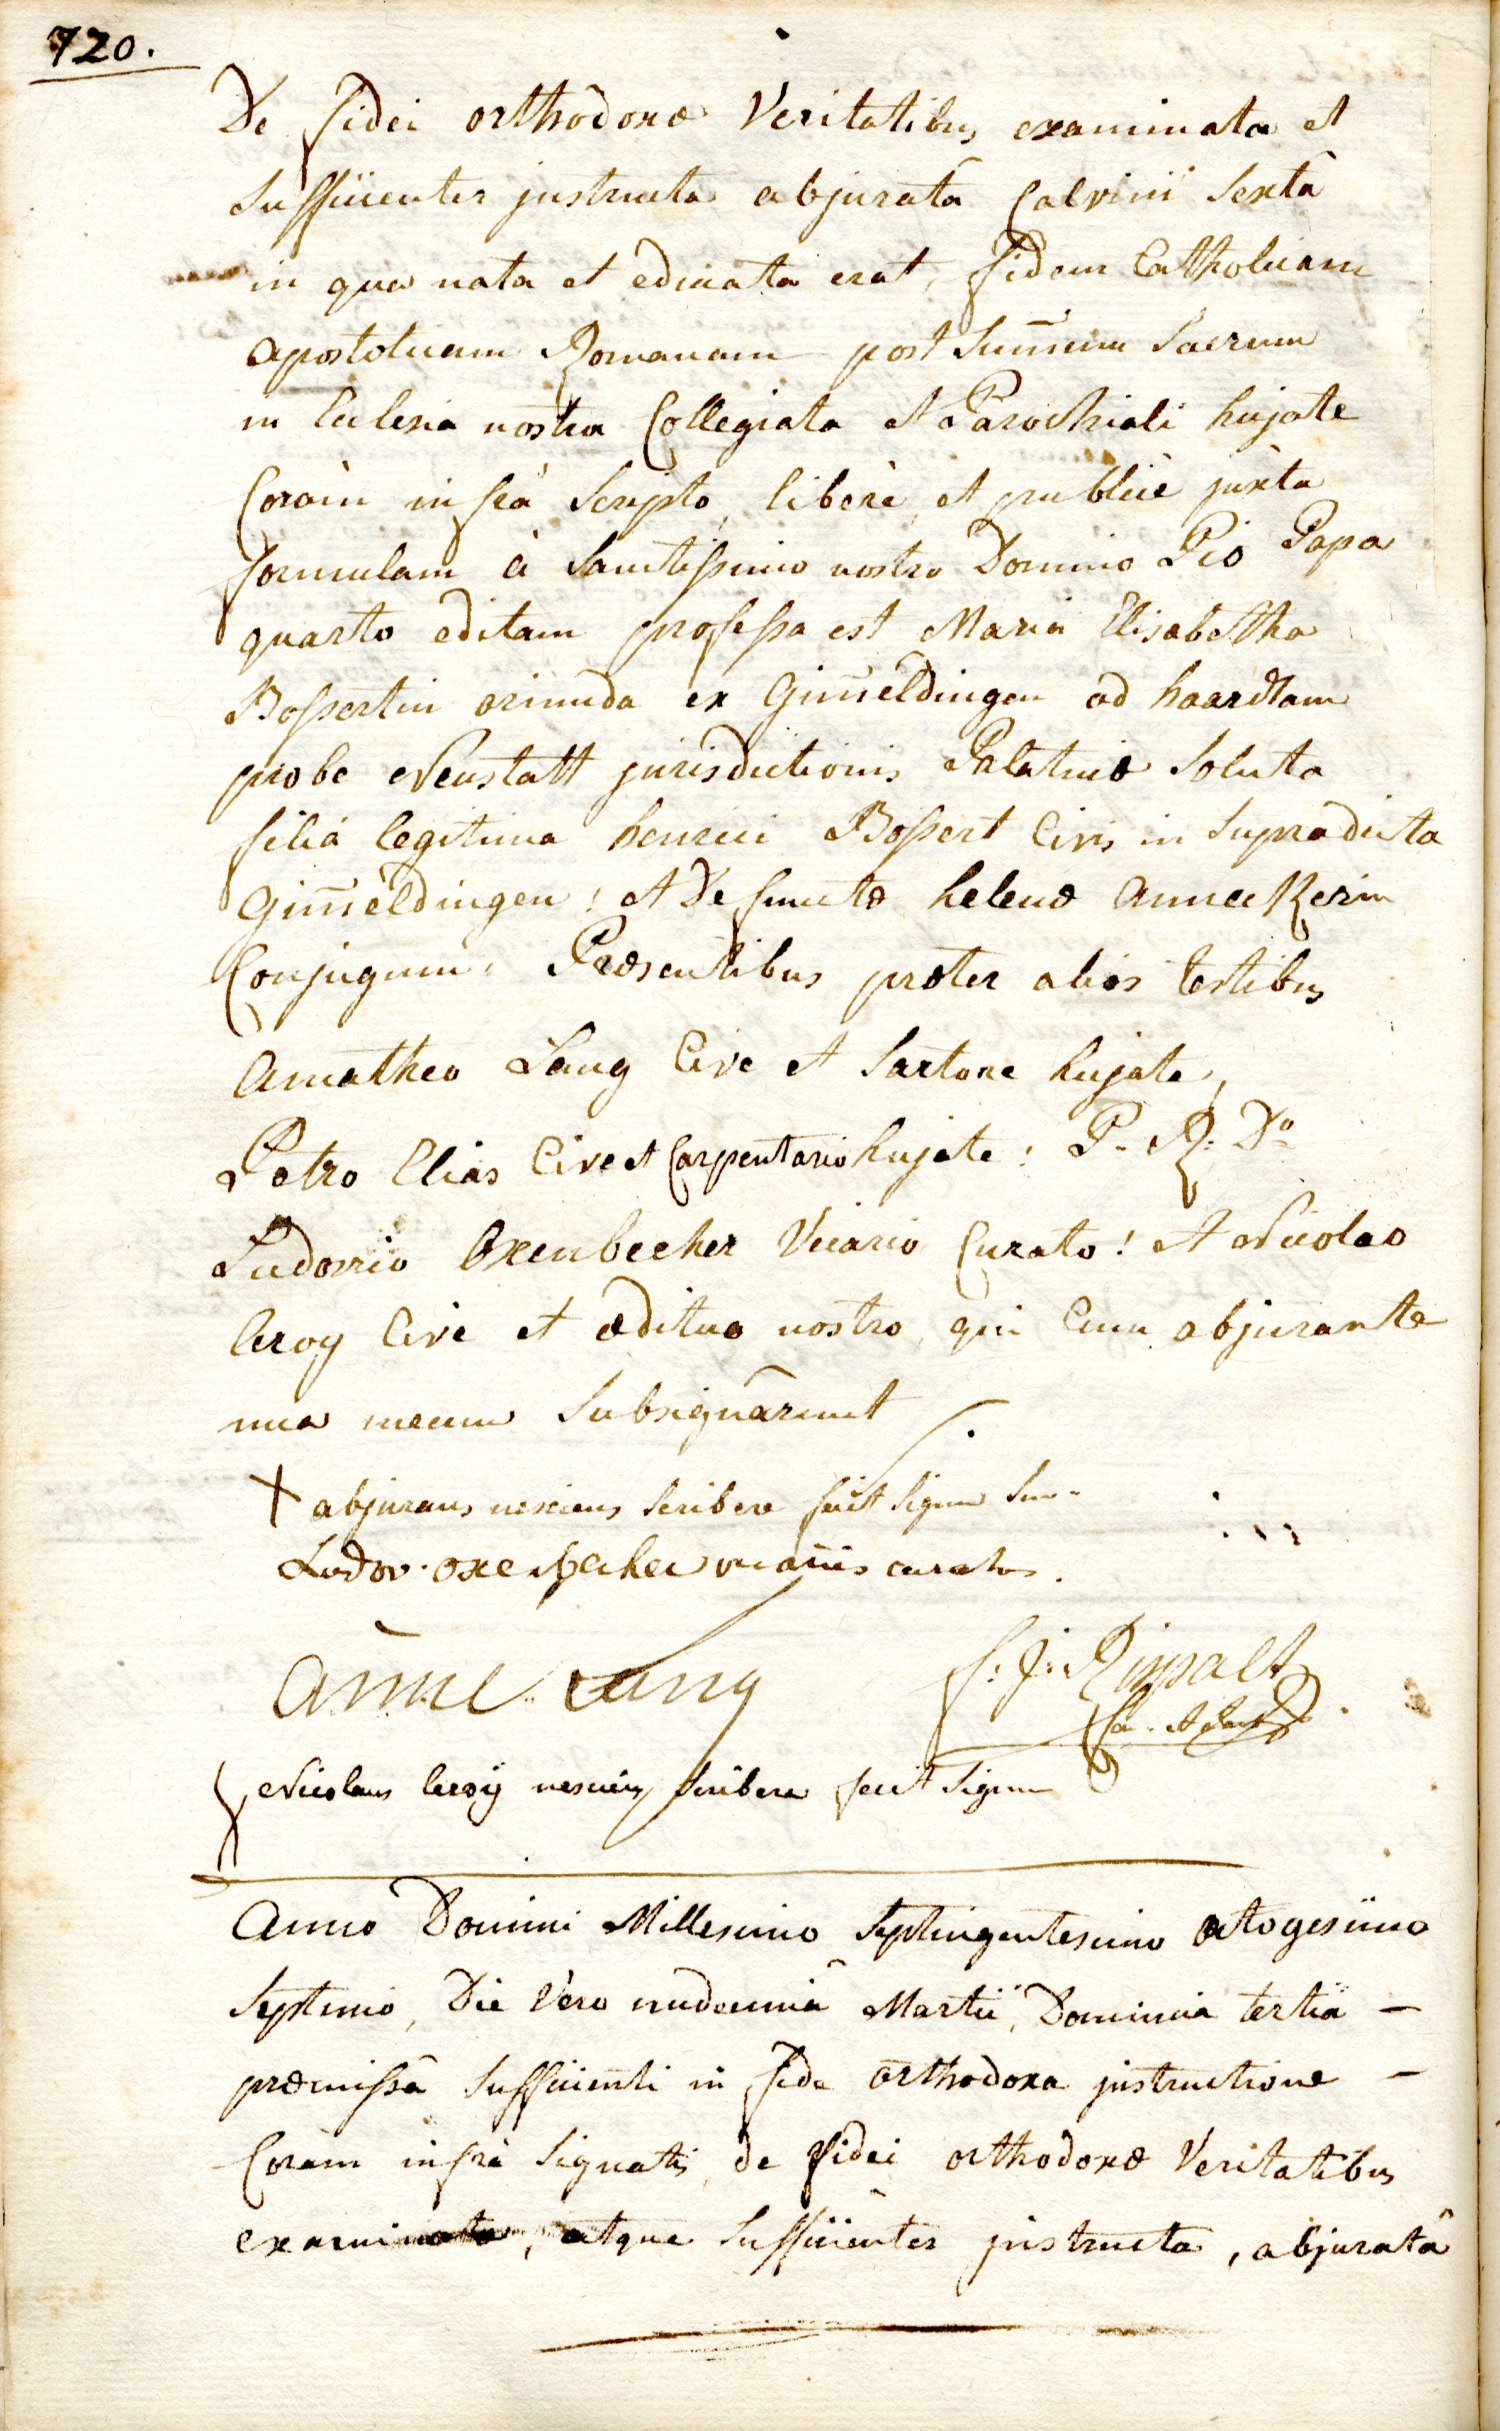 720.
De fidei orthodoxæ Veritatibus examinata et
Sufficienter jnstructa abjuratâ Calvini Sectâ
in qua nata et educata erat, fidem Catholicam
apostolicam Romanam post Sum̄um Sacrum
in Eclesia nostra Collegiata et Parochiali hujate
Coràm infrà Scripto, liberè, et publicè juxta
formulam à Sanctissimo nostro Domino Pio Papa
quarto editam professa est Maria Elisabetha
Bossertin oriunda ex Gim̄eldingen ad haardtam
probe Neustatt jurisdictionis Palatinæ Soluta
filia legitima henrici Bossert Civis in Supradicta
Gim̄eldingen: et Defunctæ helenæ
Conjugum: Præsentibus præter alios testibus
Amatheo Lang Cive et Sartore hujate,
Petro Elias Cive et Carpentario hujate: P. R. Do
Ludovico Oxenbecher Vicario Curato: et Nicolao
leroy Cive et ædituo nostro, qui Cum abjurante
una mecum Subsignârunt
+ abjurans nesciens Scribere fecit Signum Suum
Ludov. vicarius curatus.
Lang
f: j: Rippalt
Nicolaus leroÿ nesciens scribere fecit Signum
Anno Domini Millesimo Septingentesimo octogesimo
Septimo, Die Vero undecimâ Martii, Dominica tertia —
præmissâ Sufficienti in fide orthodoxa jnstructione —
Coràm infrà Signatis, de fidei orthodoxæ Veritatibus
examinata, atque Sufficienter jnstructa, abjuratâ